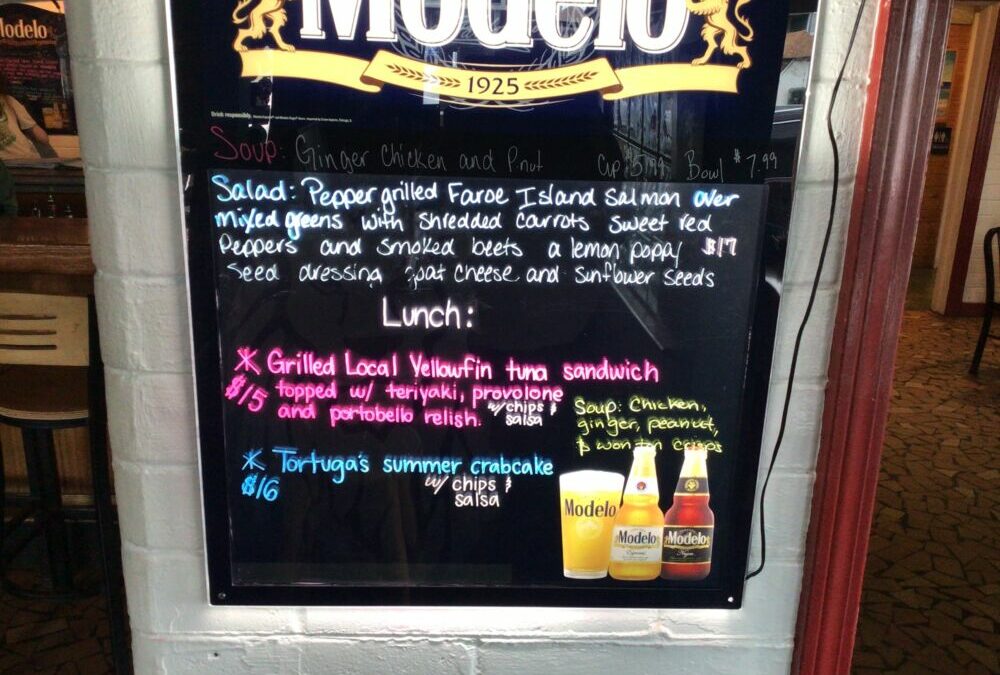 Modelo
Modelo
1925
Drink responsibly.
Soup: Ginger Chicken and P.nut Cup $5.99 Bowl $7.99
Salad: Pepper grilled Faroe Island Salmon over
mixed greens with shredded carrots sweet red
Peppers and smoked beets a lemon poppy $17
seed dressing goat cheese and sunflower seeds
Lunch:
* Grilled Local Yellowfin tuna sandwich
$15 topped w/ teriyaki, provolone
and portobello relish. w/chips &
salsa
Soup: Chicken,
ginger, peanut,
& wonton crisps
* Tortuga's summer crabcake
$16 w/ chips &
salsa
Modelo
Modelo
Especial
Modelo
Negra